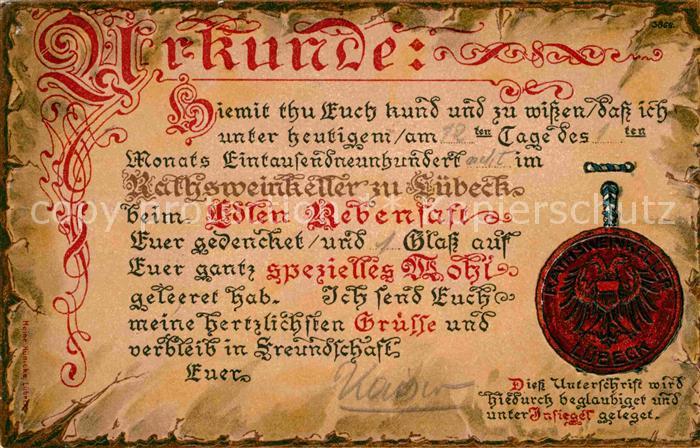 3866.
Urkunde:
Hiemit thu Euch kund und zu wißen/daß ich
unter heutigem/am 12 ten Tage des 1 ten
Monats Eintausendneunhundert acht im
Rathsweinkeller zu Lübeck
beim Edlen Rebensaft
Euer gedencket/und 1 Glaß auf
Euer gantz spezielles Wohl
geleeret hab. Ich send Euch
meine hertzlichsten Grüsse und
verbleib in Freundschaft
Euer
RATHSWEINKELLER
LÜBECK
Dieß Unterschrift wird
hiedurch beglaubiget und
unter Insiegel geleget.
copyright Papierschutz